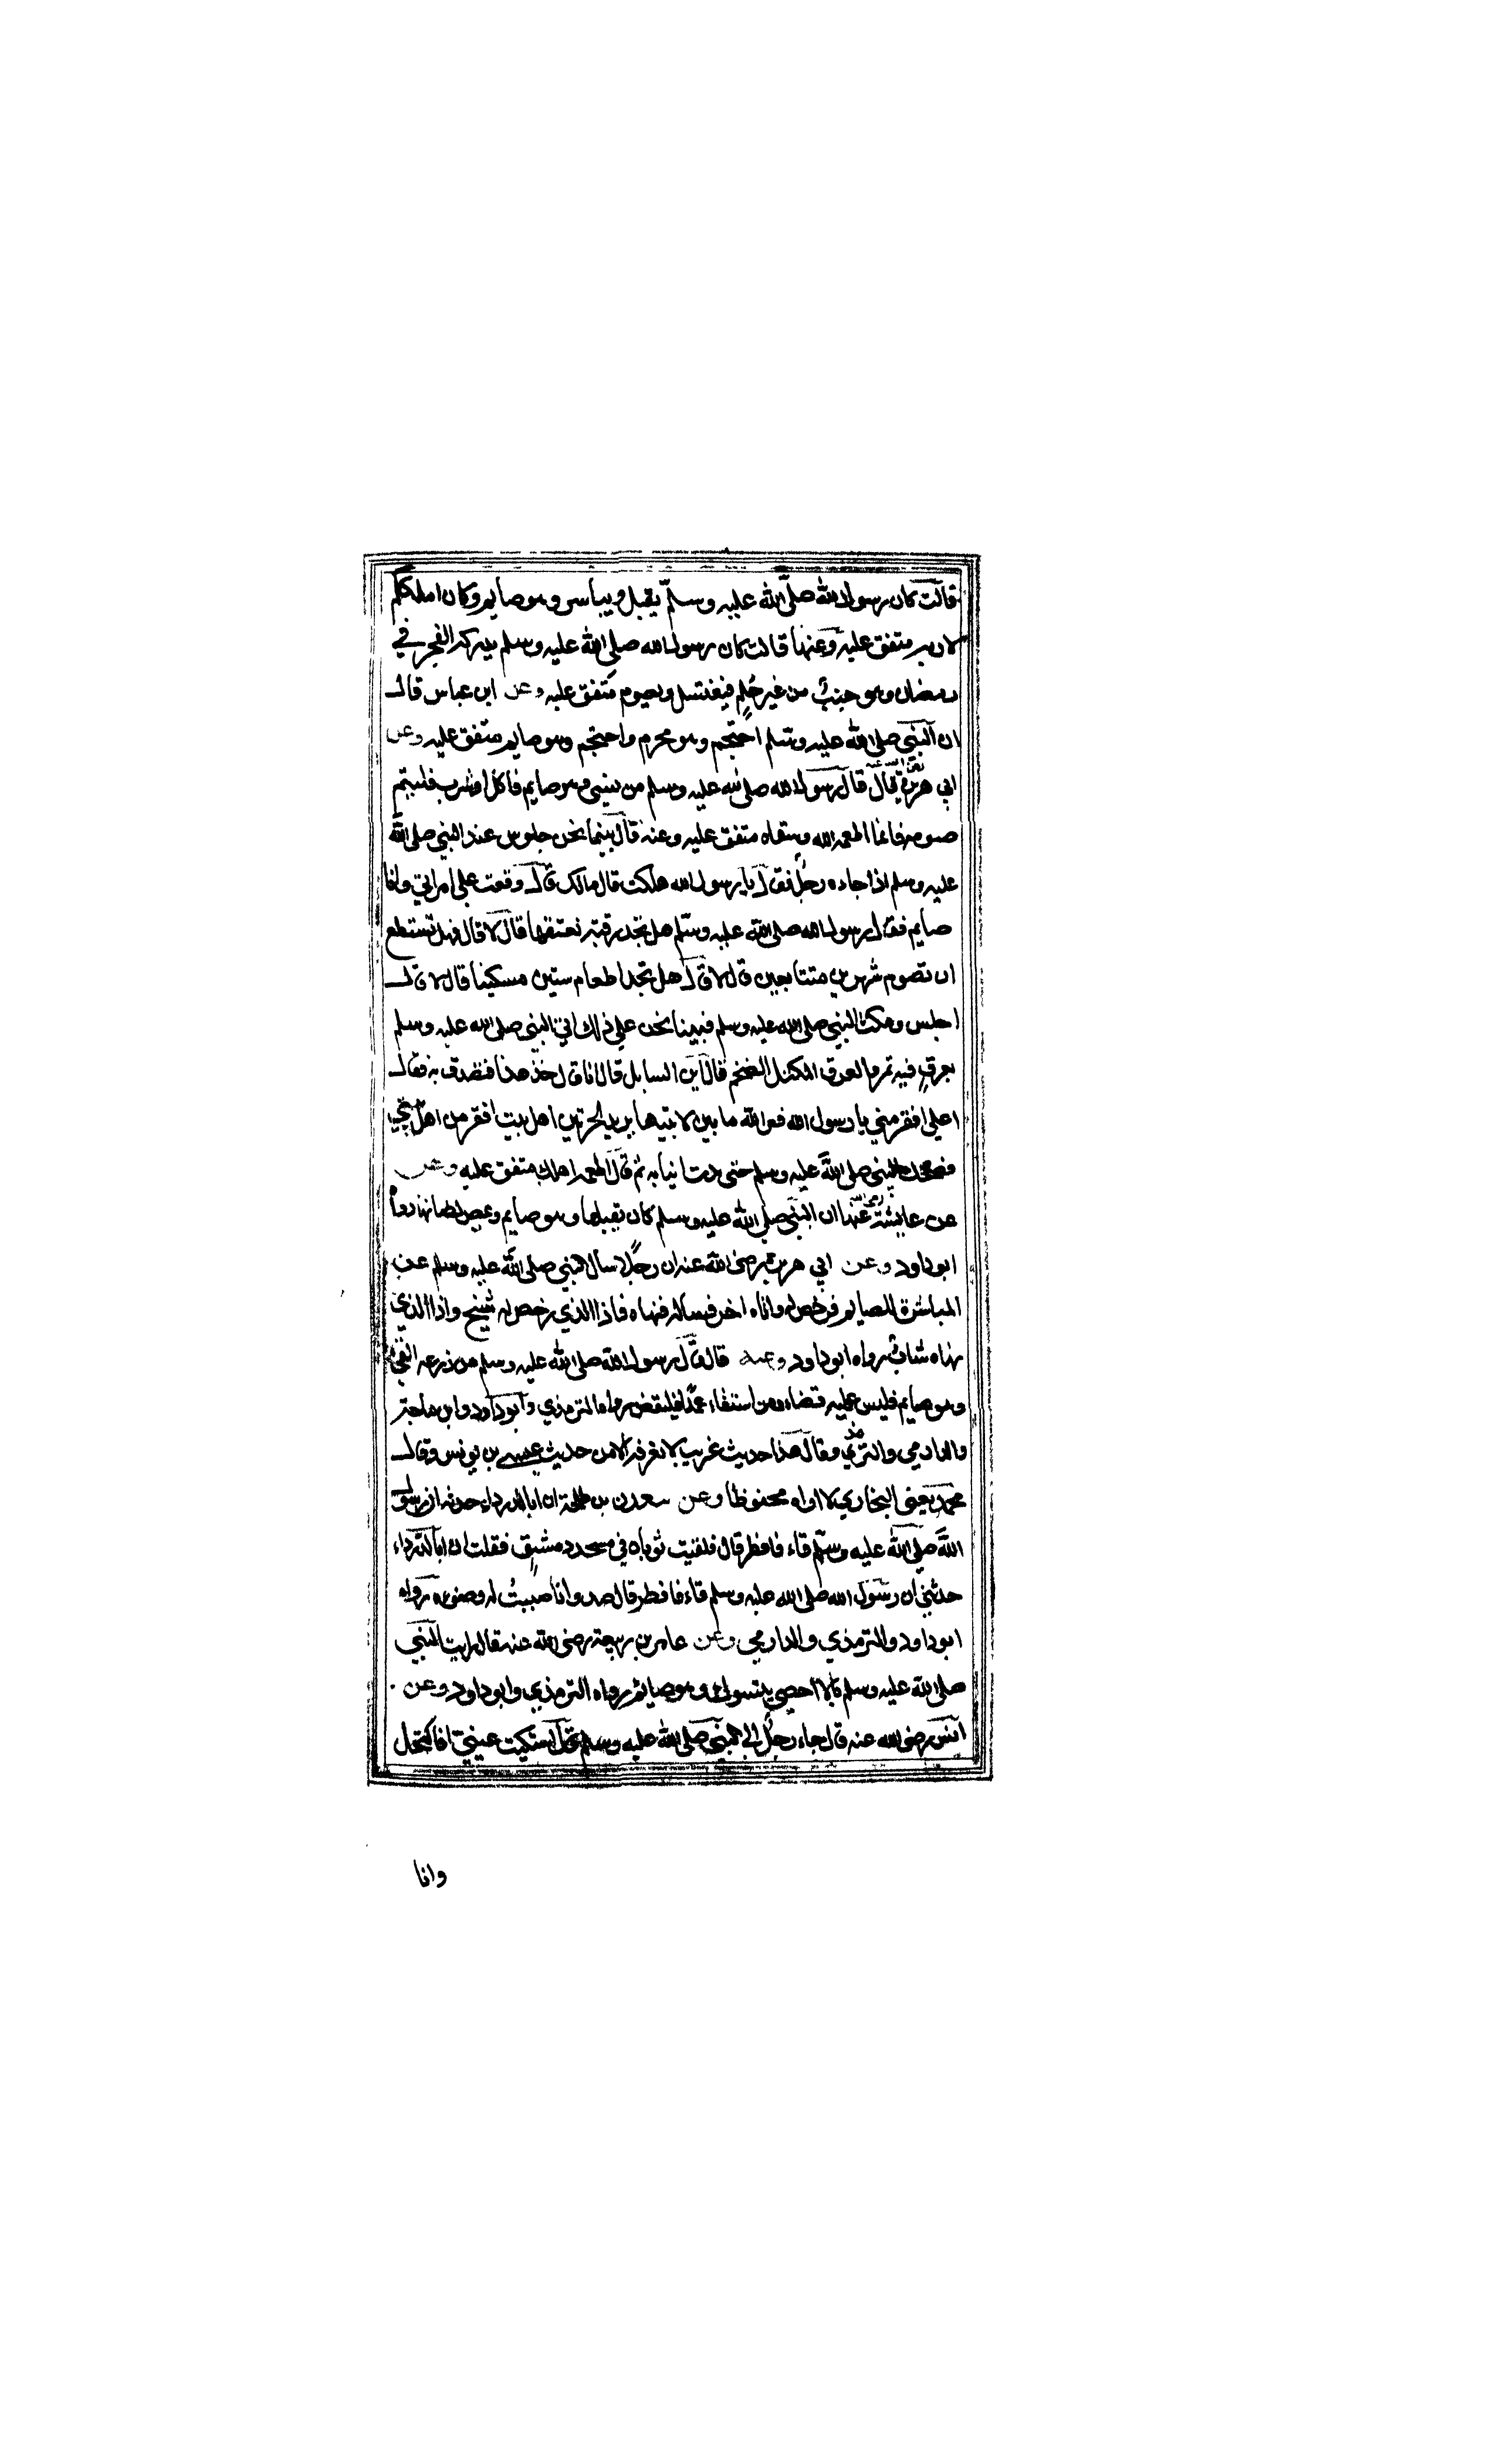 قالت كان رسول الله صلى الله عليه وسلم يقبل ويباشر وهو صايم وكان املككم
لاربه متفق عليه وعنها قالت كان رسول الله صلى الله عليه وسلم يدركه الفجر في
رمضان وهو جنب من غير حلم فيغتسل ويصوم متفق عليه وعن ابن عباس قال
ان النبي صلى الله عليه وسلم احتجم وهو محرم واحتجم وهو صايم متفق عليه وعن
ابي هريرة قال قال رسول الله صلى الله عليه وسلم من نسي وهو صايم فاكل او شرب فليتم
صومه فانما اطعمه الله وسقاه متفق عليه وعنه قال بينما نحن جلوس عند النبي صلى الله
عليه وسلم اذا جاءه رجل فقال يا رسول الله هلكت قال مالك قال وقعت على امراتي وانا
صايم فقال رسول الله صلى الله عليه وسلم هل تجد رقبة تعتقها قال لا قال فهل تستطع
ان تصوم شهرين متتابعين قال لا قال هل تجد اطعام ستين مسكينا قال لا قال
اجلس ومكث النبي صلى الله عليه وسلم فبينا نحن على ذلك اتي النبي صلى الله عليه وسلم
بعرق فيه تمر والعرق المكتل الضخم قال اين السايل قال انا قال خذ هذا فتصدق به فقال
اعلى افقر مني يا رسول الله فوالله ما بين لابتيها يريد الحرتين اهل بيت افقر من اهل بيتي
فضحك النبي صلى الله عليه وسلم حتى بدت انيابه ثم قال اطعمه اهلك متفق عليه وعن
عن عايشة رضي الله عنها ان النبي صلى الله عليه وسلم كان يقبلها وهو صايم ويمص لسانها رواه
ابو داود وعن ابي هريرة رضى الله عنه ان رجلا سأل النبي صلى الله عليه وسلم عن
المباشرة للصايم فرخص له واتاه اخر فساله فنهاه فاذا الذي رخص له شيخ واذا الذي
نهاه شاب رواه ابو داود وعنه قال قال رسول الله صلى الله عليه وسلم من ذرعه القيء
وهو صايم فليس عليه قضاء ومن استقاء عمدا فليقض رواه الترمذي وابو داود وابن ماجة
والدارمي والترمذي وقال هذا حديث غريب لا نعرفه الا من حديث عيسى بن يونس وقال
محمد يعني البخاري لا اراه محفوظا وعن معدن بن طلحة ان ابا الدرداء حدثه ان رسول
الله صلى الله عليه وسلم قاء فافطر قال فلقيت ثوبان في مسجد دمشق فقلت ان ابا الدرداء
حدثني ان رسول الله صلى الله عليه وسلم قاء فافطر قال صدق وانا صببت له وضوءه رواه
ابو داود والترمذي والدارمي وعن عامر بن ربيعة رضى الله عنه قال رايت النبي
صلى الله عليه وسلم مالا احصي يتسوك وهو صايم رواه الترمذي وابو داود وعن
انس رضى الله عنه قال جاء رجل الى النبي صلى الله عليه وسلم قال اشتكيت عيني افاكتحل
وانا